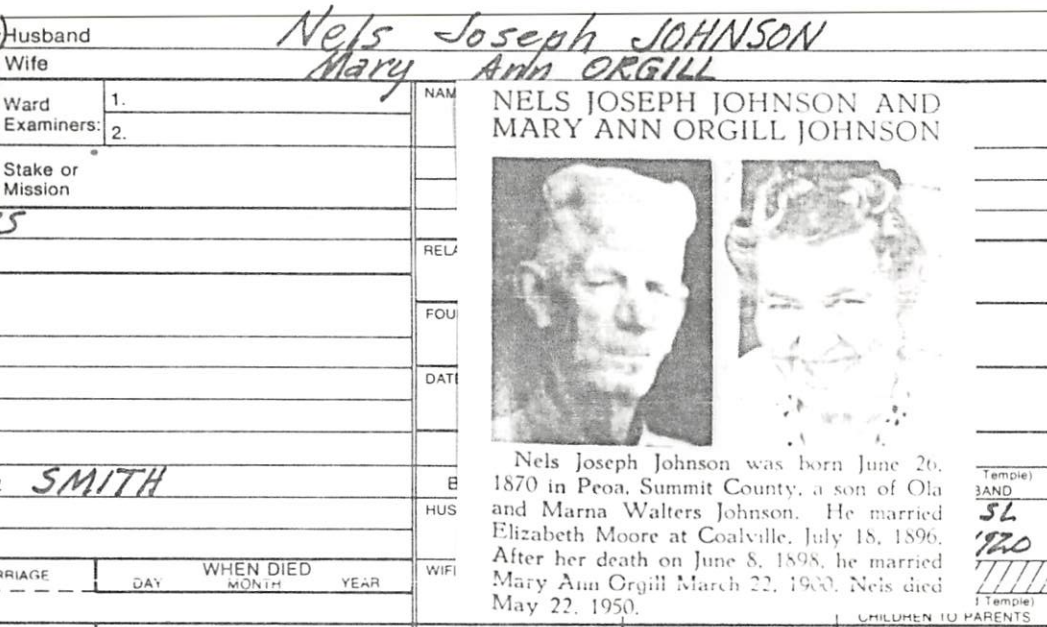 Husband Nels Joseph JOHNSON
Wife Mary Ann ORGILL
Ward
Examiners:
1.
2.
Stake or
Mission
SMITH
WHEN DIED
DAY MONTH YEAR
NELS JOSEPH JOHNSON AND
MARY ANN ORGILL JOHNSON
Nels Joseph Johnson was born June 26,
1870 in Peoa, Summit County, a son of Ola
and Marna Walters Johnson. He married
Elizabeth Moore at Coalville, July 18, 1896.
After her death on June 8, 1898, he married
Mary Ann Orgill March 22, 1900. Nels died
May 22, 1950.
Temple)
SL
Temple)
CHILDREN TO PARENTS